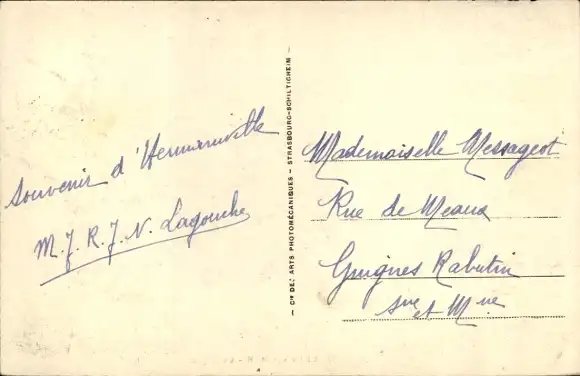 Souvenir d'Hermanville
M. J. R. J. N. Lagouche
— Cie DES ARTS PHOTOMÉCANIQUES – STRASBOURG-SCHILTIGHEIM —
Mademoiselle Messageot
Rue de Meaux
Guignes Rabutin
Sne et Mne